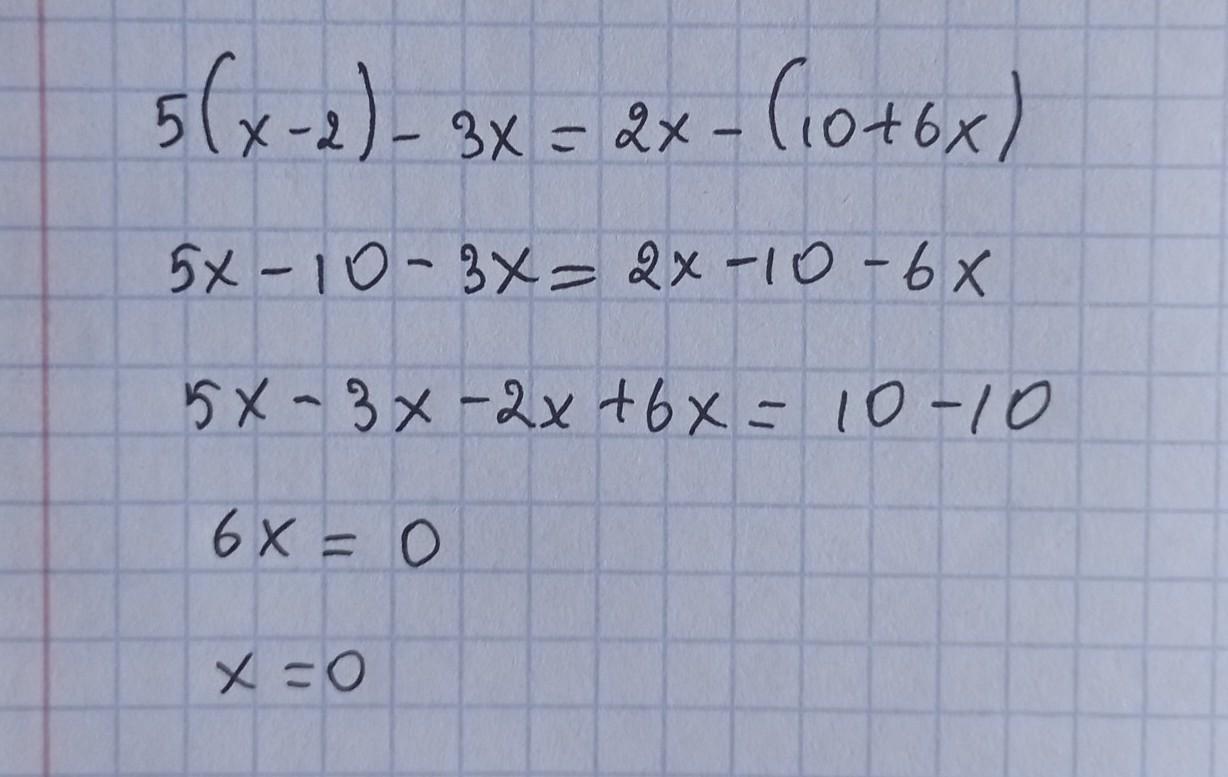 5(x-2)-3x=2x-(10+6x)
5x-10-3x=2x-10-6x
5x-3x-2x+6x=10-10
6x=0
x=0